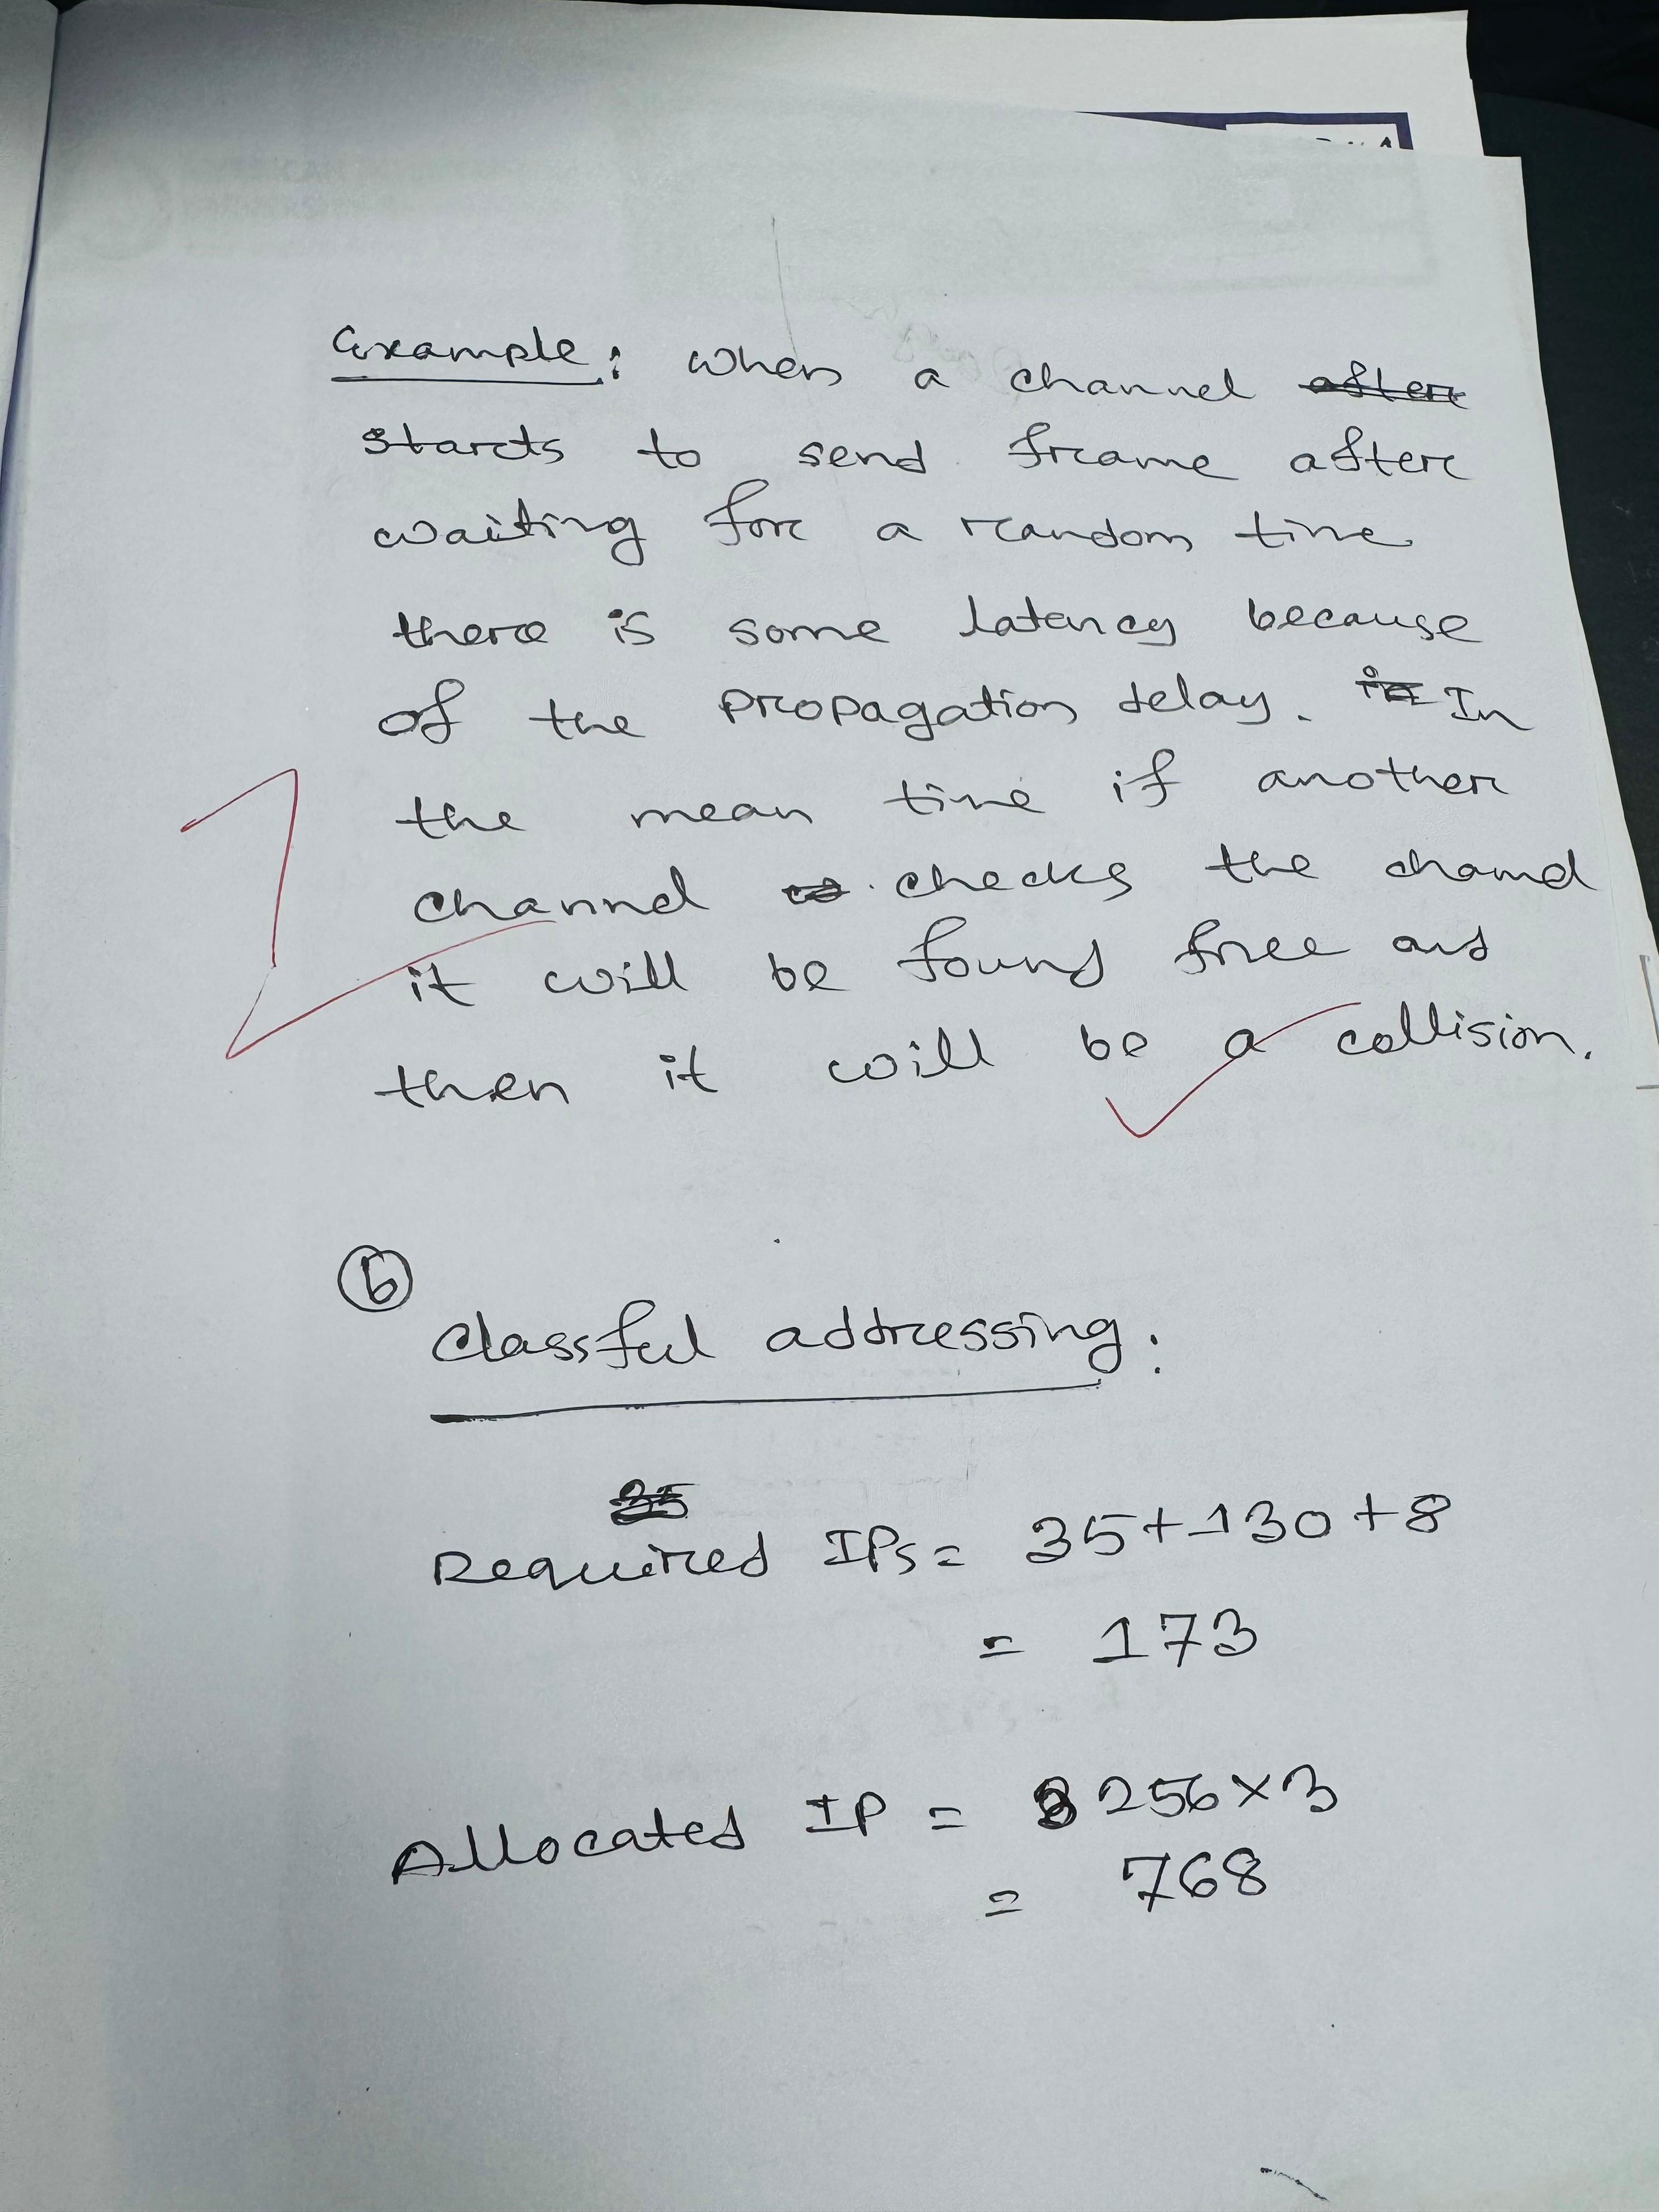 Example: When a channel after
starts to send frame after
waiting for a random time
there is some latency because
of the propagation delay. in In
the mean time if another
channel checks the channel
it will be found free and
then it will be a collision.
6
Classful addressing:
35
Required IPs = 35+130+8
= 173
Allocated IP = 256×3
= 768